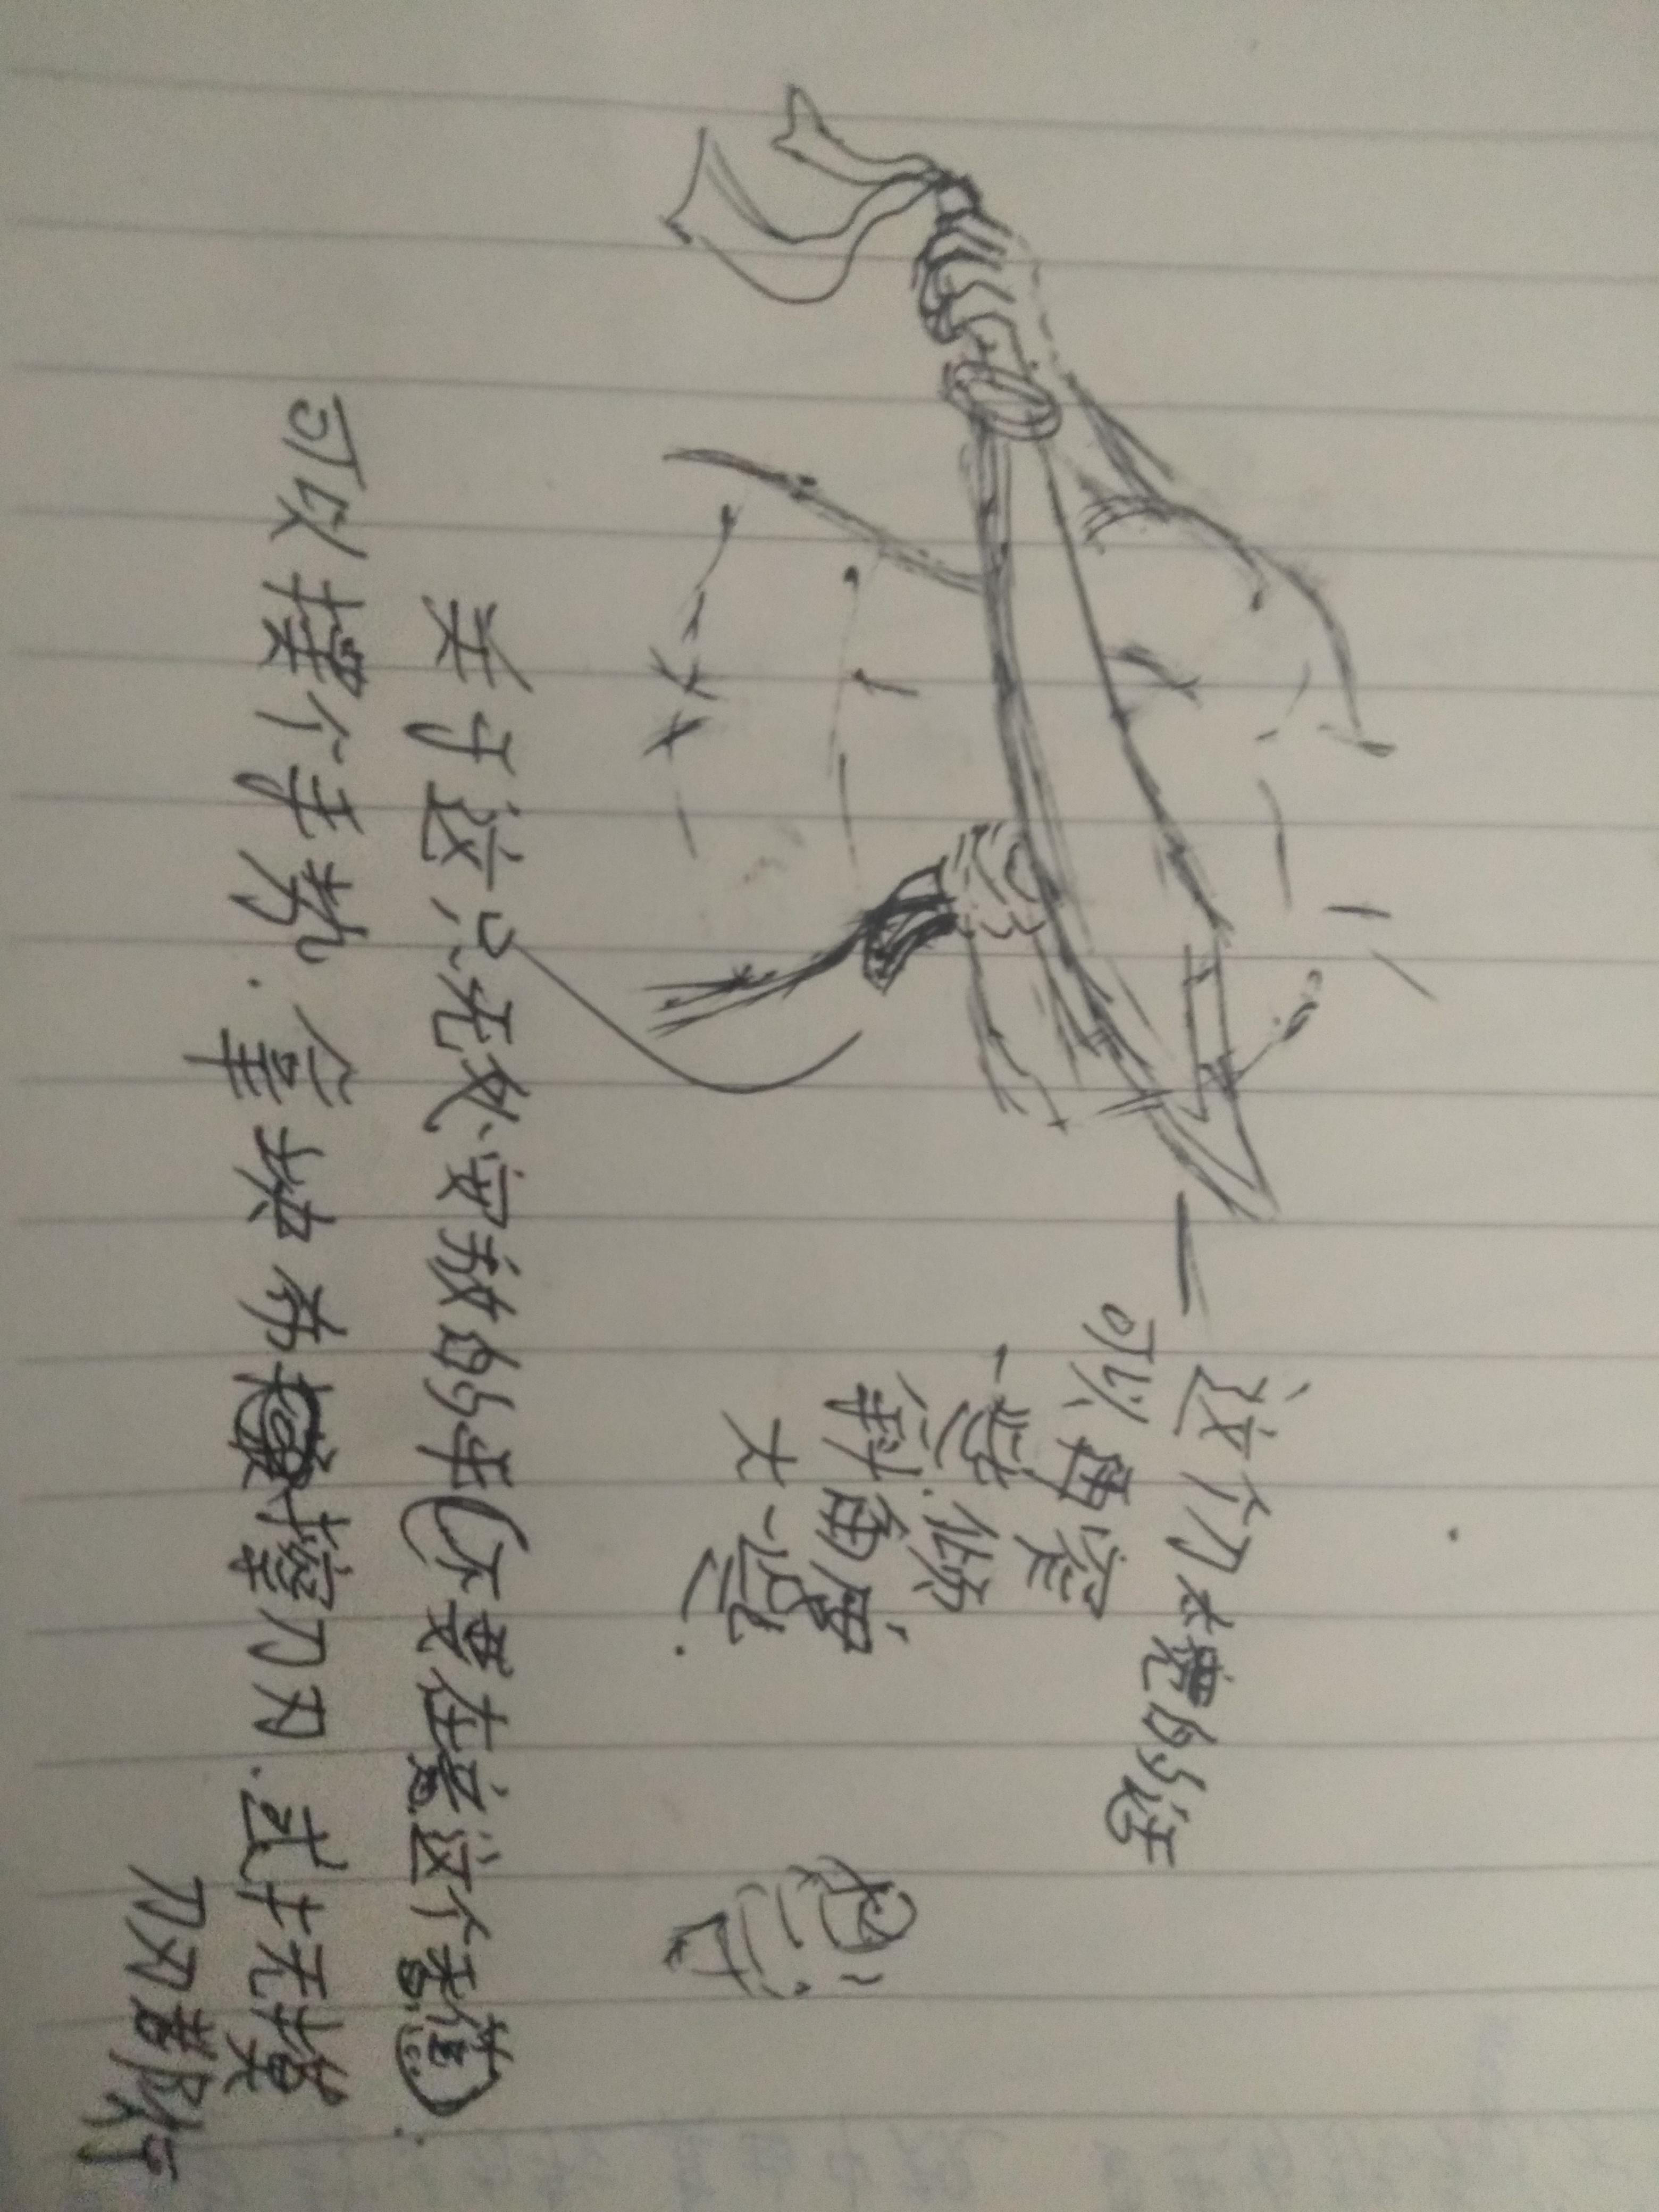 这个刀太宽的话
可以再窄
一些.倾
斜角度
大一些.
关于这只无处安放的手(不要在意这个表情).
可以摆个手势.拿块布擦刀刃.或者摸
刀刃都行